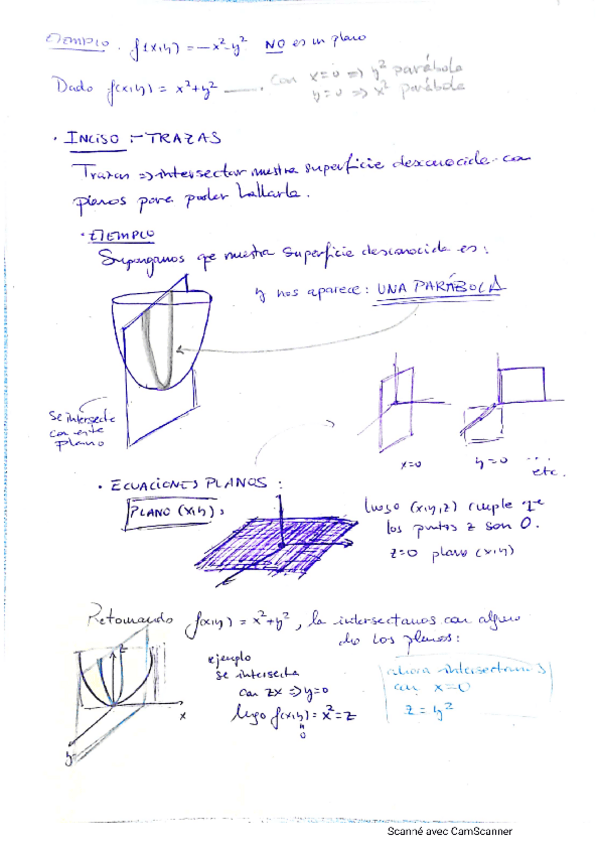 EJEMPLO. f(x,y) = -x²-y² NO es un plano
Dado f(x,y) = x²+y² . Con x=0 => y² parábola
y=0 => x² parábola
· INCISO :- TRAZAS
Trazas => intersectar nuestra superficie desconocida con
planos para poder hallarla.
· EJEMPLO
Supongamos qe nuestra superficie desconocida es:
y nos aparece: UNA PARÁBOLA
Se intersecta
con este
plano
x=0
y=0
...
etc.
· ECUACIONES PLANOS:
PLANO (x,y):
Luego (x,y,z) cumple qe
los puntos z son 0.
z=0 plano (x,y)
Retomando f(x,y) = x²+y², la intersectamos con alguno
de los planos:
z
x
y
ejemplo
se intersecta
con zx => y=0
luego f(x,y) = x² = z
0
ahora intersectamos
con x=0
z = y²
Scanné avec CamScanner